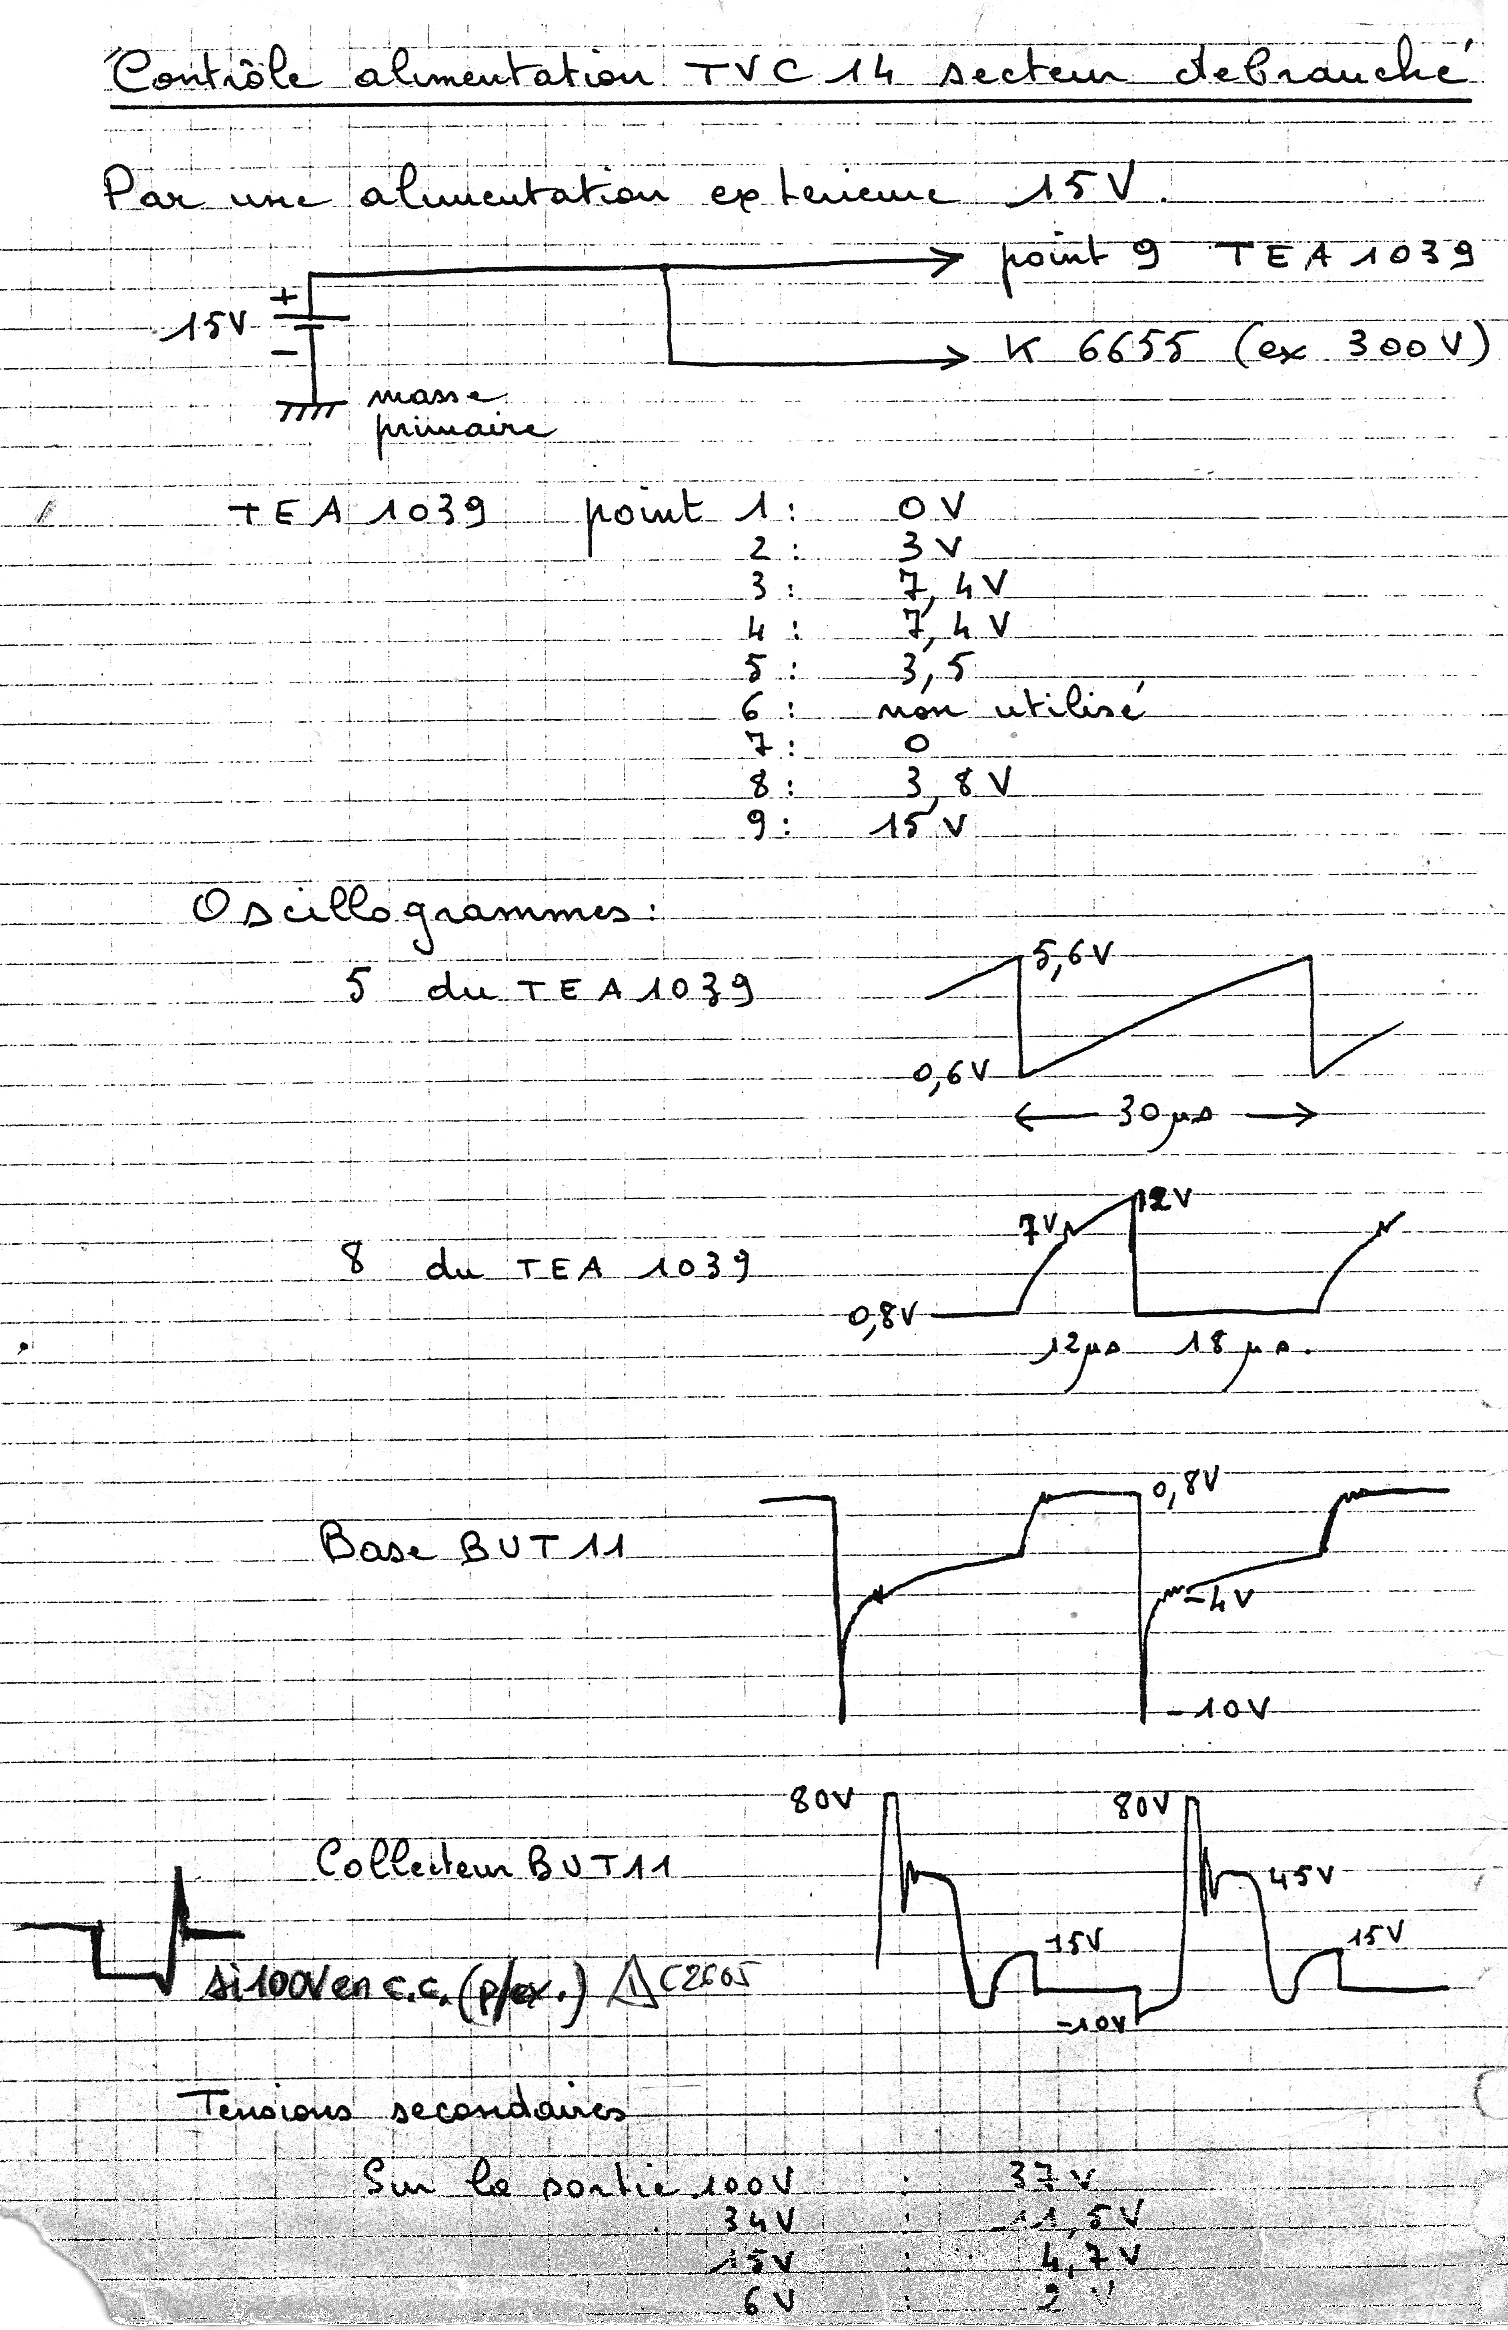 Contrôle alimentation TVC 14 secteur debranché
Par une alimentation exterieure 15V.
point 9 TEA1039
+
15V
K 6655 (ex 300V)
−
masse
primaire
TEA 1039 point 1: 0V
2: 3V
3: 7,4V
4: 7,4V
5: 3,5
6: non utilisé
7: 0
8: 3,8V
9: 15V
Oscillogrammes:
5,6V
5 du TEA1039
0,6V
30µs
12V
7V
8 du TEA 1039
0,8V
12µs 18µs.
0,8V
Base BUT11
-4V
-10V
80V 80V
Collecteur BUT11
45V
15V 15V
si 100V en c.c. (p/ex.) ⚠ C2605
-10V
Tensions secondaires
Sur la sortie 100V : 37V
34V : 11,5V
15V : 4,7V
6V : V